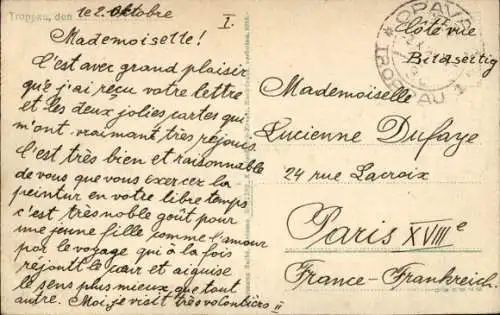 Troppau, den
le 2. Oktobre
I.
Mademoiselle!
C'est avec grand plaisir
que j'ai reçu votre lettre
et les deux jolies cartes qui
m'ont vraimant très réjouis.
C'est très bien et raisonnable
de vous que vous exercez la
peintur en votre libre temps
c'est très noble goût pour
une jeune fille comme l'amour
par le voyage qui à la fois
réjouit le cœur et aiguise
le sens plus mieux que tout
autre. Moi, je visit très volontiers
II
OPAVA
TROPPAU
1
Côté vue
Bildseitig
Mademoiselle
Lucienne Dufaye
24 rue Lacroix
Paris XVIIIe
France-Frankreich.